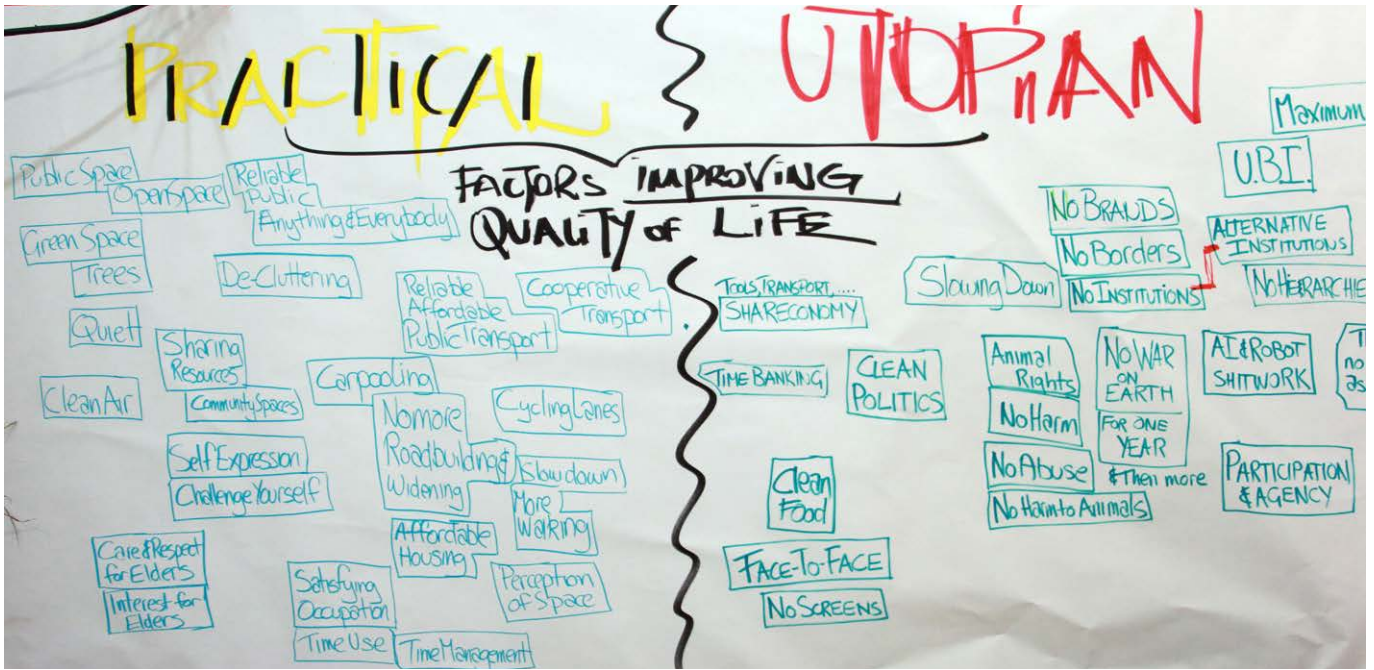 PRACTICAL
UTOPiAN
FACTORS iMPROViNG
QUALiTY OF LiFE
Public Space
OpenSpace
Reliable
Public
Anything & Everybody
Green Space
Trees
De-Cluttering
Quiet
Sharing
Resources
Community Spaces
Clean Air
Self Expression
Challenge Yourself
Care & Respect
for Elders
Interest for
Elders
Reliable
Affordable
Public Transport
Cooperative
Transport
Carpooling
No more
Roadbuilding &
Widening
Cycling Lanes
Slow down
More
Walking
Affordable
Housing
Perception
of Space
Satisfying
Occupation
Time Use
Time Management
TOOLS, TRANSPORT, ....
SHARECONOMY
TIME BANKING
CLEAN
POLITICS
Clean
Food
FACE-TO-FACE
NO SCREENS
Slowing Down
No BRANDS
No Borders
No INSTITUTIONS
Maximum
U.B.I.
ALTERNATIVE
INSTITUTIONS
NO HIERARCHIE
Animal
Rights
No Harm
No Abuse
No Harm to Animals
NO WAR
ON
EARTH
FOR ONE
YEAR
& Then more
AI & ROBOT
SHITWORK
PARTICIPATION
& AGENCY
T
no
as